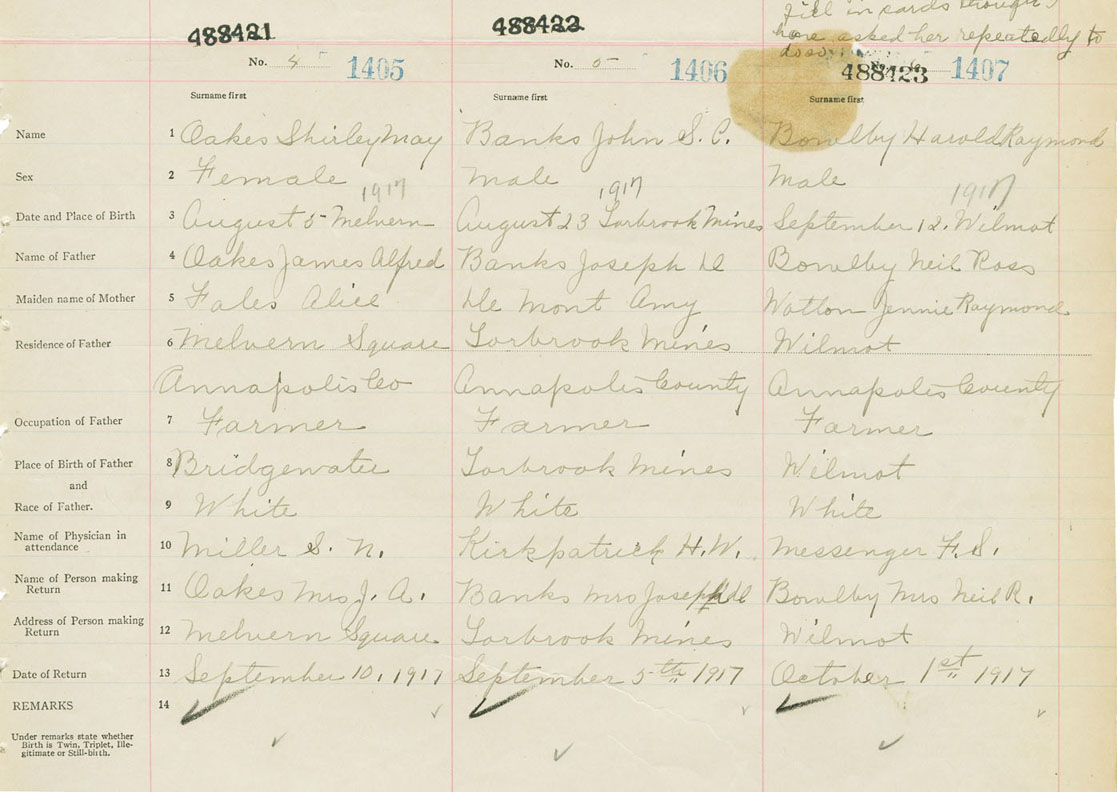 fill in cards through
have asked her repeatedly to
do so
488421 488422 488423
No. 4 1405 No. 5 1406 1407
Surname first Surname first Surname first
Name 1 Oakes Shirley May Banks John S. C. Bowlby Harold Raymond
Sex 2 Female Male Male
1917 1917 1917
Date and Place of Birth 3 August 5 - Melvern August 23 Torbrook Mines September 12. Wilmot
Name of Father 4 Oakes James Alfred Banks Joseph De Bowlby Neil Ross
Maiden name of Mother 5 Fales Alice De Mont Amy Wotton Jennie Raymond
Residence of Father 6 Melvern Square Torbrook Mines Wilmot
Annapolis Co Annapolis County Annapolis County
Occupation of Father 7 Farmer Farmer Farmer
Place of Birth of Father 8 Bridgewater Torbrook Mines Wilmot
and
Race of Father. 9 White White White
Name of Physician in
attendance 10 Miller S. N. Kirkpatrick H. W. Messenger F. S.
Name of Person making
Return 11 Oakes Mrs J. A. Banks Mrs Joseph De Bowlby Mrs Neil R.
Address of Person making
Return 12 Melvern Square Torbrook Mines Wilmot
Date of Return 13 September 10, 1917 September 5th 1917 October 1st 1917
REMARKS 14
Under remarks state whether
Birth is Twin, Triplet, Ille-
gitimate or Still-birth.